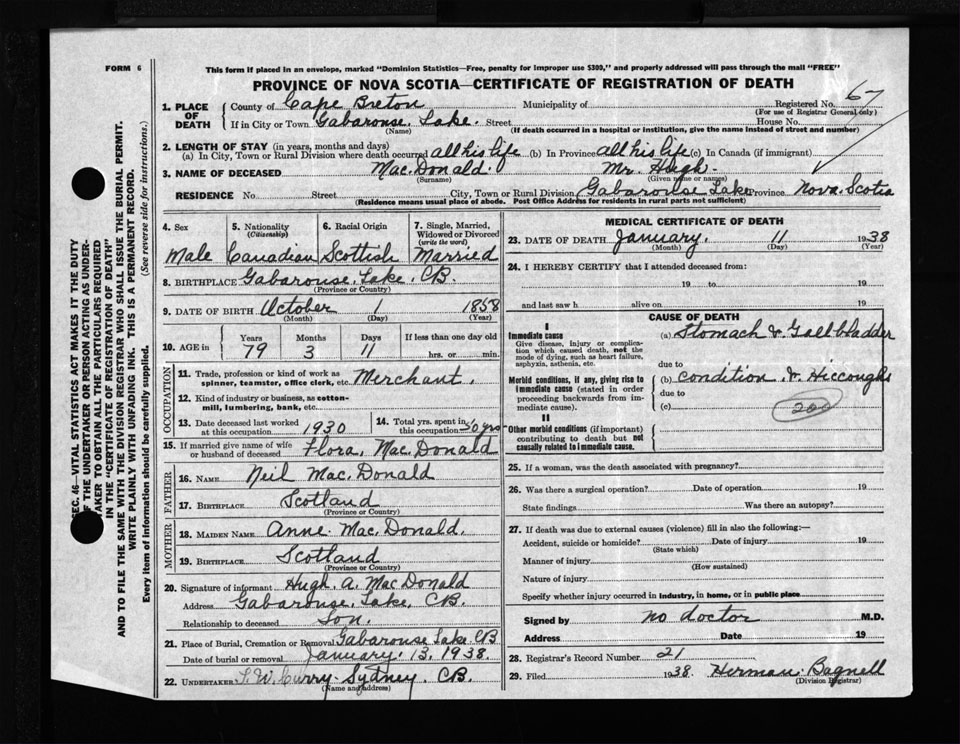 FORM 6
This form if placed in an envelope, marked "Dominion Statistics—Free, penalty for improper use $300," and properly addressed will pass through the mail "FREE"
PROVINCE OF NOVA SCOTIA—CERTIFICATE OF REGISTRATION OF DEATH
1. PLACE OF DEATH
County of Cape Breton Municipality of Registered No. 67
(For use of Registrar General only)
If in City or Town Gabarouse Lake. Street House No.
(Name) (If death occurred in a hospital or institution, give the name instead of street and number)
2. LENGTH OF STAY (in years, months and days)
(a) In City, Town or Rural Division where death occurred all his life (b) In Province all his life (c) In Canada (if immigrant)
3. NAME OF DECEASED MacDonald. Mr. Hugh.
(Surname) (Given name or names)
RESIDENCE No. Street City, Town or Rural Division Gabarouse Lake Province Nova Scotia
(Residence means usual place of abode. Post Office Address for residents in rural parts not sufficient)
4. Sex 5. Nationality (Citizenship) 6. Racial Origin 7. Single, Married, Widowed or Divorced (write the word)
Male Canadian Scottish Married
8. BIRTHPLACE Gabarouse Lake, CB.
(Province or Country)
9. DATE OF BIRTH October 1 1858
(Month) (Day) (Year)
10. AGE in Years Months Days If less than one day old
79 3 11 hrs. or min.
OCCUPATION
11. Trade, profession or kind of work as spinner, teamster, office clerk, etc. Merchant.
12. Kind of industry or business, as cotton-mill, lumbering, bank, etc.
13. Date deceased last worked at this occupation 1930
14. Total yrs. spent in this occupation 50 yrs
15. If married give name of wife or husband of deceased Flora MacDonald
FATHER
16. NAME Neil MacDonald
17. BIRTHPLACE Scotland
(Province or Country)
MOTHER
18. MAIDEN NAME Anne MacDonald.
19. BIRTHPLACE Scotland
(Province or Country)
20. Signature of informant Hugh A. MacDonald
Address Gabarouse Lake, CB.
Relationship to deceased Son.
21. Place of Burial, Cremation or Removal Gabarouse Lake CB
Date of burial or removal January 13, 1938.
22. UNDERTAKER Curry Sydney. CB.
(Name and address)
MEDICAL CERTIFICATE OF DEATH
23. DATE OF DEATH January. 11 1938
(Month) (Day) (Year)
24. I HEREBY CERTIFY that I attended deceased from:
19 to 19
and last saw h alive on 19
CAUSE OF DEATH
I
Immediate cause
Give disease, injury or complication which caused death, not the mode of dying, such as heart failure, asphyxia, asthenia, etc.
(a) Stomach & Gall bladder
due to
Morbid conditions, if any, giving rise to immediate cause (stated in order proceeding backwards from immediate cause).
(b) condition & Hiccoughs
due to
(c)
200
II
Other morbid conditions (if important) contributing to death but not causally related to immediate cause.
25. If a woman, was the death associated with pregnancy?
26. Was there a surgical operation? Date of operation 19
State findings Was there an autopsy?
27. If death was due to external causes (violence) fill in also the following:—
Accident, suicide or homicide? Date of injury 19
(State which)
Manner of injury
(How sustained)
Nature of injury
Specify whether injury occurred in industry, in home, or in public place
Signed by no doctor M.D.
Address Date 19
28. Registrar's Record Number 21
29. Filed 1938. Herman Bagnell
(Division Registrar)
SEC. 46—VITAL STATISTICS ACT MAKES IT THE DUTY
OF THE UNDERTAKER OR PERSON ACTING AS UNDER-
TAKER TO OBTAIN ALL THE PARTICULARS REQUIRED
IN THE "CERTIFICATE OF REGISTRATION OF DEATH"
AND TO FILE THE SAME WITH THE DIVISION REGISTRAR WHO SHALL ISSUE THE BURIAL PERMIT.
WRITE PLAINLY WITH UNFADING INK. THIS IS A PERMANENT RECORD.
Every item of information should be carefully supplied. (See reverse side for instructions.)